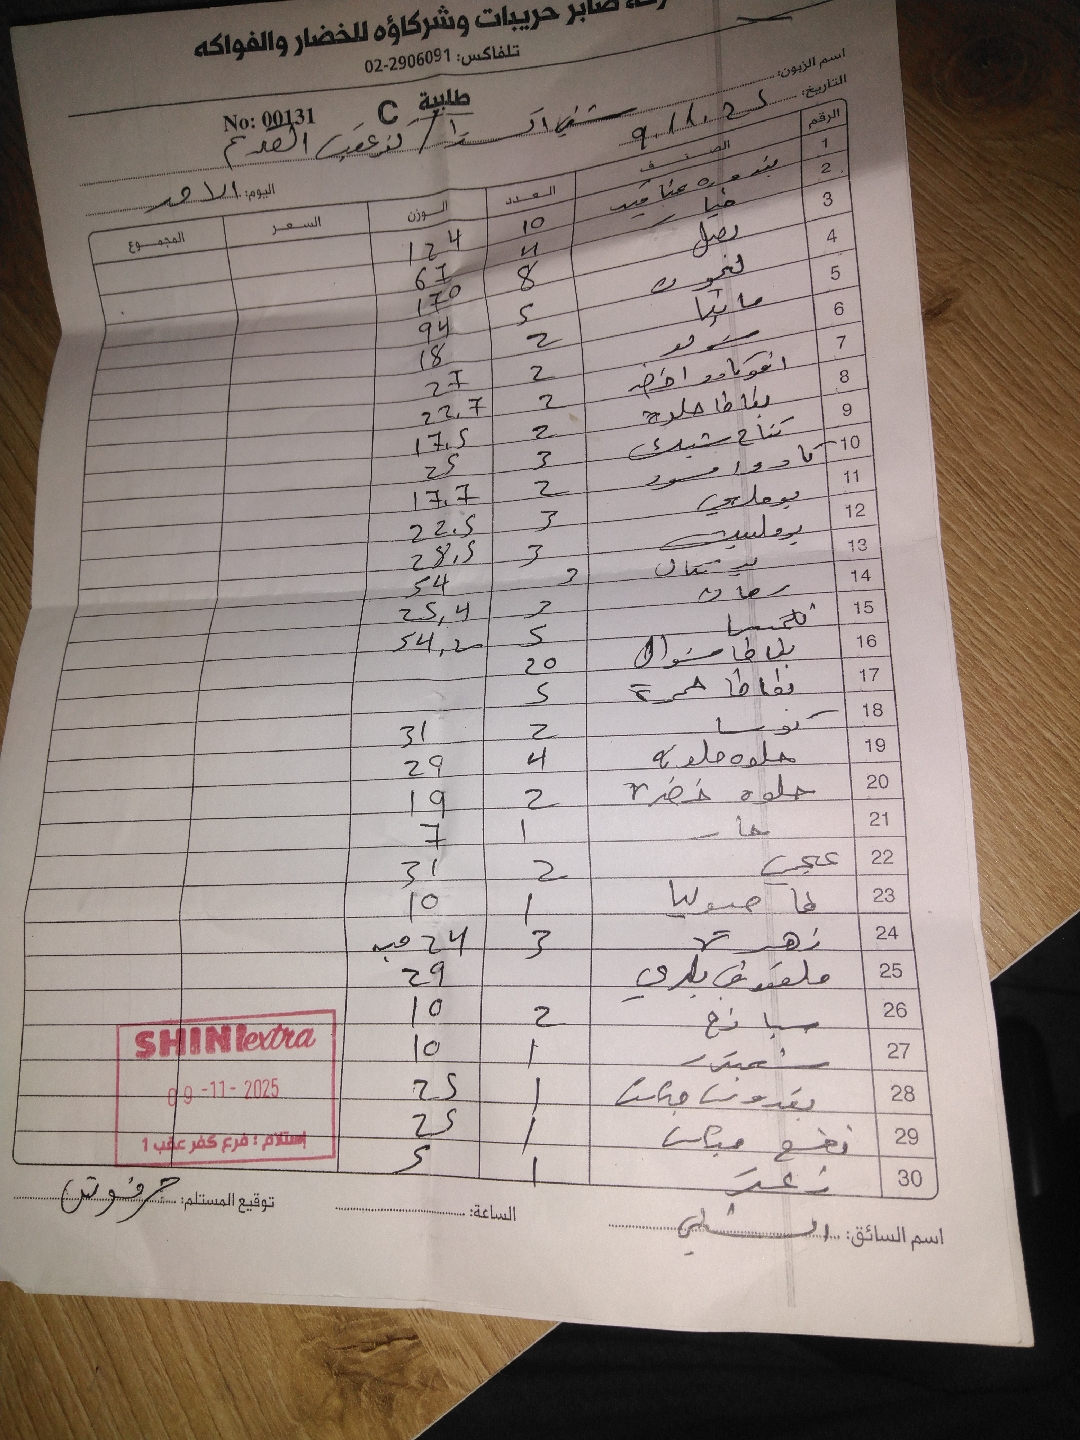 صابر حريبات وشركاؤه للخضار والفواكه
تلفاكس: 02-2906091
طلبية C
No: 00131
اسم الزبون: شني اكسترا / كفر عقب القديم
التاريخ: 9.11.25
اليوم: الاحد
الرقم الصنف العدد الوزن السعر المجموع
1 بندوره عناقيد 10 124
2 خيار 4 67
3 بصل 8 170
4 ليمون 5 94
5 مانجا 2 18
6 شمندر 2 27
7 افوكادو اخضر 2 22.7
8 بطاطا حلوة 2 17.5
9 تفاح 3 25
10 2 17.7
11 بوملي 3 22.5
12 3 28.5
13 برتقال 3 54
14 رمان 3 25,4
15 كلمنتينا 5 54,2
16 بطاطا 20
17 بطاطا حمرة 5
18 كوسا 2 31
19 حلوه ملونه 4 29
20 حلوه خضرة 2 19
21 حار 1 7
22 عجر 2 31
23 فاصوليا 1 10
24 زهرة 3 24 حبه
25 ملفوف بلدي 29
26 سبانخ 2 10
27 1 10
28 بقدونس 1 25
29 نعنع 1 25
30 زعتر 1 5
SHINI extra
09-11-2025
إستلام : فرع كفر عقب 1
اسم السائق: الشلبي
الساعة:
توقيع المستلم: